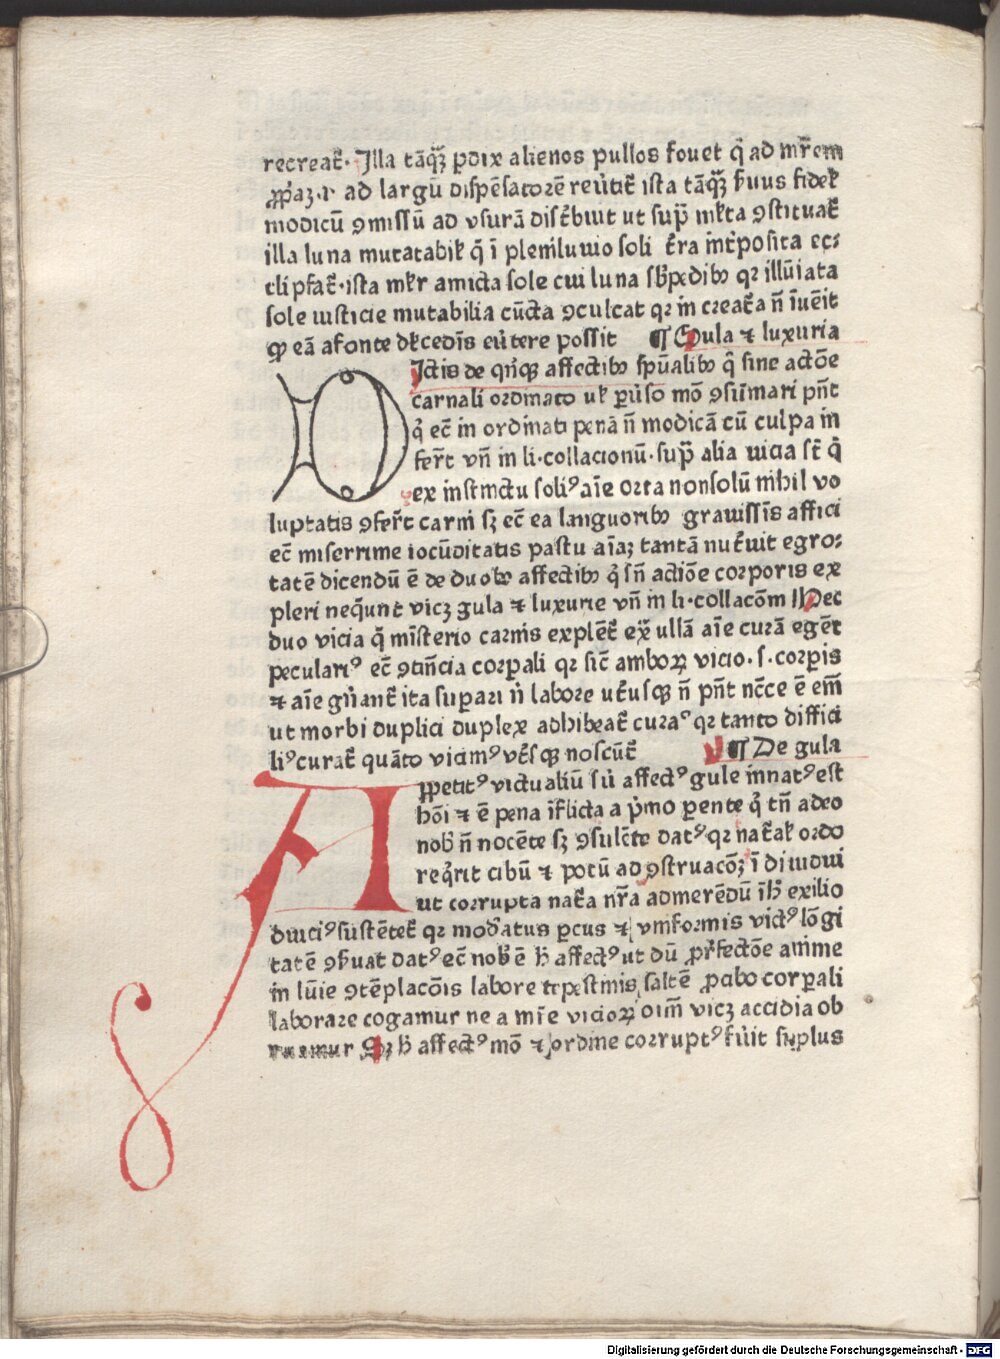 recreat᷑. Jlla tāqꝫ ꝑdix alienos pullos fouet q̄ ad mr̄em
ꝓp̄az.i. ad largū dispēsatorē reūtit᷑ ista tāqꝫ ẜuus fidel᷑
modicū ꝯmissū ad vsurā dist᷑biuit ut suꝑ ml᷑ta ꝯstituat᷑
illa luna mutatabil᷑ q̄ ī pleniluuio soli t᷑ra int᷑posita ec⸗
clipsat᷑. ista ml᷑r amicta sole cui luna sb᷑pedibꝰ qꝛ illūiata
sole iusticie mutabilia cūcta ꝯculcat qꝛ in creat᷑a n̄ īuēit
ꝙ eā a fonte dl᷑cedīs eu᷑tere possit ¶ Gula ⁊ luxuria
DJctis de qnꝙ affectibꝰ spūalibꝰ q̄ sine actōe
carnali ordinato ul᷑ ꝑuso mō ꝯsūmari pn̄t
q̇ ec̄ in ordinati penā n̄ modicā cū culpa in
fer᷑t vn̄ in li. collacionū. suꝑ alia uicia st̄ q̇
ex instinctu soliꝰ aīe orta nonsolū nihil vo
luptatis ꝯfer᷑t carni sꝫ ec̄ ea languoribꝰ grauissīs affici
ec̄ miserrime iocūditatis pastu aīaꝫ tantā nut᷑uit egro⸗
tatē dicendū ē de duobꝰ affectibꝰ q̇ sn̄ actiōe corporis ex
pleri neq̄unt vicꝫ gula ⁊ luxurie vn̄ in li. collacōm Hec
duo vicia q̄ mīsterio carnis explēt᷑ exͣ ullā aīe curā egēt
peculariꝰ ec̄ ꝯtin̄cia corꝑali qꝛ sic̄ amboꝝ vicio. s. corꝑis
⁊ aīe gn̄ant᷑ ita suꝑari n̄ labore ut᷑usꝙ n̄ pn̄t nc̄ce ē em̄
ut morbi duplici duplex adhibeat᷑ curaꝰ qꝛ tanto diffici
liꝰ curat᷑ quāto viciniꝰ vt᷑sꝙ noscūt᷑ ¶ De gula
APpetitꝰ victualiū siū affectꝰ gule innatꝰ est
hōi ⁊ ē pena īflicta a p᷑mo ꝑente q̇ tn̄ adeo
nob᷑ n̄ nocēte sꝫ ꝯsulēte datꝰ qꝛ nat᷑al᷑ ordo
req̇rit cibū ⁊ potū ad ꝯstruacōꝫ ī diuidui
ut corrupta nat᷑a nr̄a admerēdū īh᷑ exilio
diuciꝰ sustētet᷑ qꝛ mod᷑atus ꝑcus ⁊ vniformis victꝰ lōgi
tatē ꝯẜuat datꝰ ec̄ nob᷑ ē h᷑ affectꝰ ut dū ꝓp᷑fectōe anime
in lūie ꝯtēplacōis labore tepestinis saltē ꝓcibo corꝑali
laborare cogamur ne a mr̄e vicioꝝ oim̄ vicꝫ accidia ob
ruamur Sꝫ h᷑ affectꝰ mō ⁊ ordine corruptꝰ fūit suplus
Digitalisierung gefördert durch die Deutsche Forschungsgemeinschaft - DFG